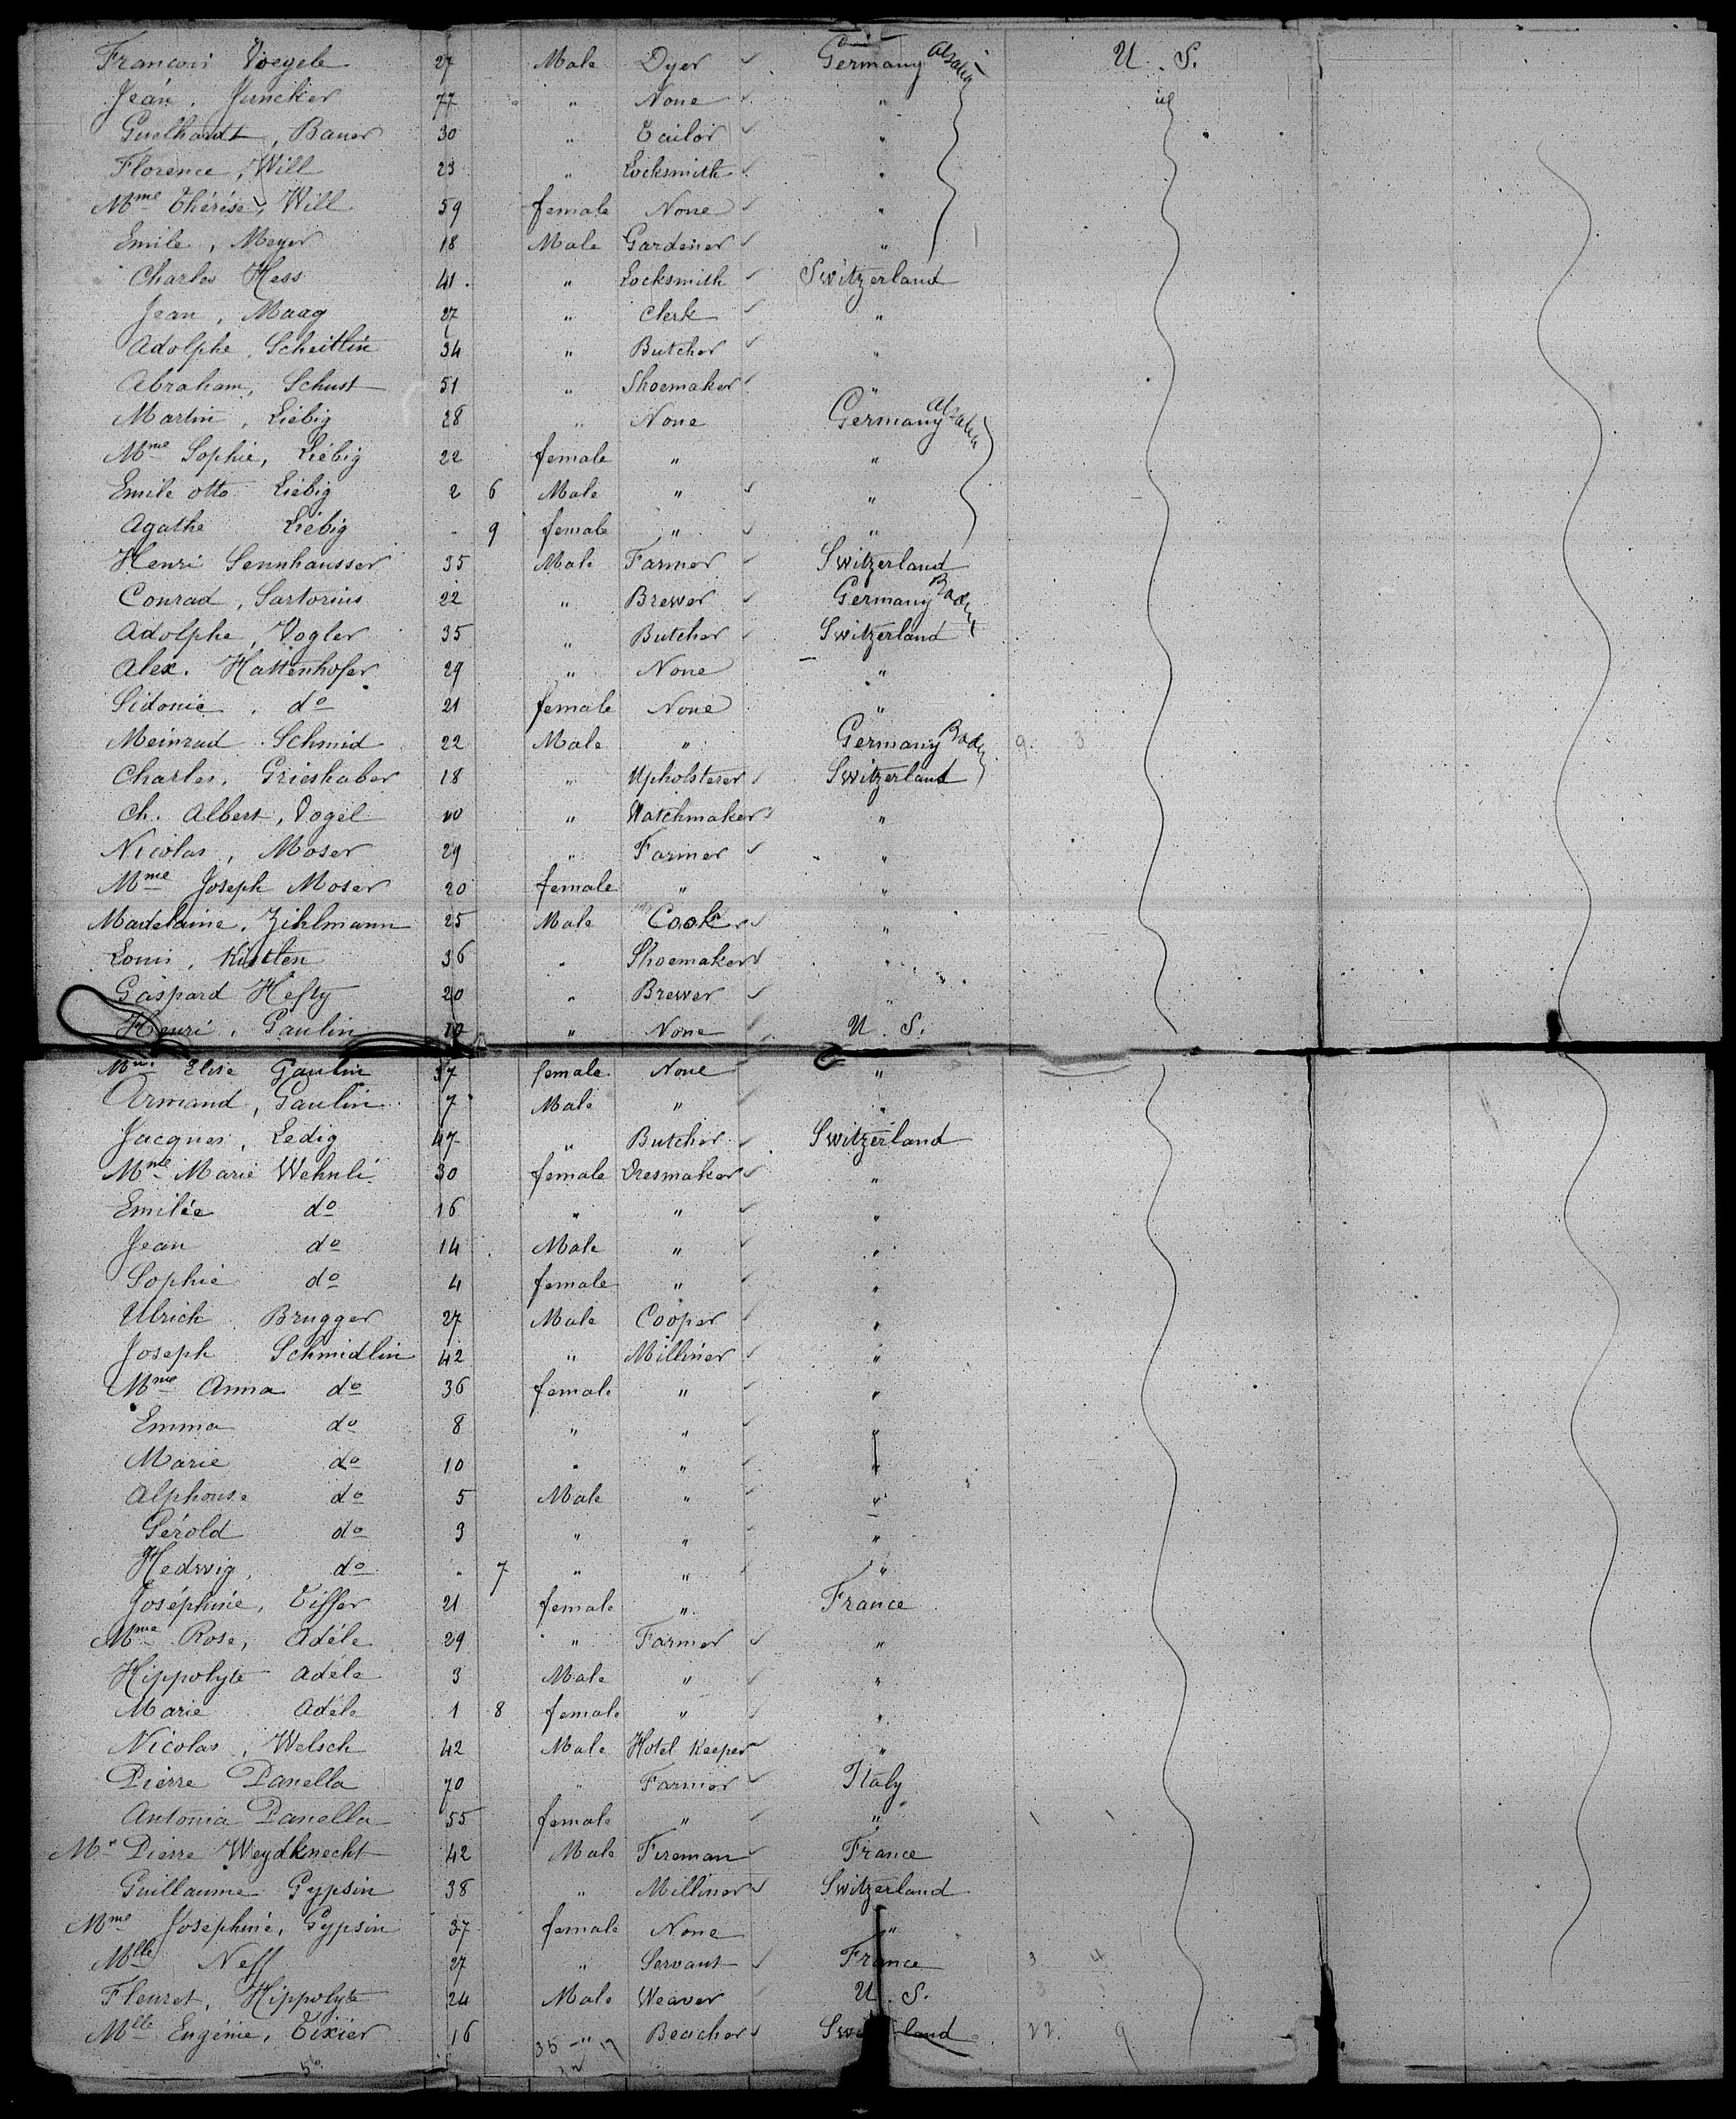 François Voegele 27 Male Dyer Germany Alsatia U. S.
Jean, Juncker 77 " None "
Guelhardt, Bauer 30 " Tailor "
Florence, Will 23 " Locksmith "
Mme Thérèse, Will 59 female None "
Emile, Meyer 18 Male Gardener "
Charles Hess 41 " Locksmith Switzerland
Jean, Maag 27 " Clerk "
Adolphe, Scheitlin 34 " Butcher "
Abraham, Schust 51 " Shoemaker "
Martin, Liebig 28 " None Germany Alsatia
Mme Sophie, Liebig 22 female " "
Emile Otto Liebig 2 6 Male " "
Agathe Liebig - 9 female " "
Henri Sennhausser 35 Male Farmer Switzerland
Conrad, Sartorius 22 " Brewer Germany Baden
Adolphe, Vogler 35 " Butcher Switzerland
Alex. Hattenhofer 29 " None "
Sidonie, do 21 female None "
Meinrad Schmid 22 Male " Germany Baden 9. 3
Charles, Grieshaber 18 " Upholsterer Switzerland
Ch. Albert, Vogel " Watchmaker "
Nicolas, Moser 29 " Farmer "
Mme Joseph Moser 20 female " "
Madelaine, Zihlmann 25 Male Cook "
Louis, Kistten 36 " Shoemaker "
Gaspard Hefty 20 " Brewer "
Henri, Gaulin " None U. S.
Mme Elise Gaulin 37 female None "
Armand, Gaulin 7 Male " "
Jacques, Ledig 47 " Butcher Switzerland
Mme Marie Wehnli 30 female Dresmaker "
Emilie do 16 " " "
Jean do 14 Male " "
Sophie do 4 female " "
Ulrich Brugger 27 Male Cooper "
Joseph Schmidlin 42 " Milliner "
Mme Anna do 36 female " "
Emma do 8 " " "
Marie do 10 " " "
Alphonse do 5 Male " "
Gérold do 3 " " "
Hedwig, do - 7 " " "
Joséphine, Tiffer 21 female " France
Mme Rose, Adéle 29 " Farmer "
Hippolyte Adéle 3 Male " "
Marie Adéle 1 8 female " "
Nicolas, Welsch 42 Male Hotel Keeper "
Pierre Panella 70 " Farmer Italy
Antonia Panella 55 female " "
Mr Pierre Weydknecht 42 Male Fireman France
Guillaume Gypsin 38 " Milliner Switzerland
Mme Josephine, Gypsin 37 female None "
Mlle Neff 27 " Servant France 3 4
Fleuret, Hippolyte 24 Male Weaver U. S. 3
Mlle Eugénie, Tixier 16 " Beacher Switzerland 22. 9
56 35 - 17